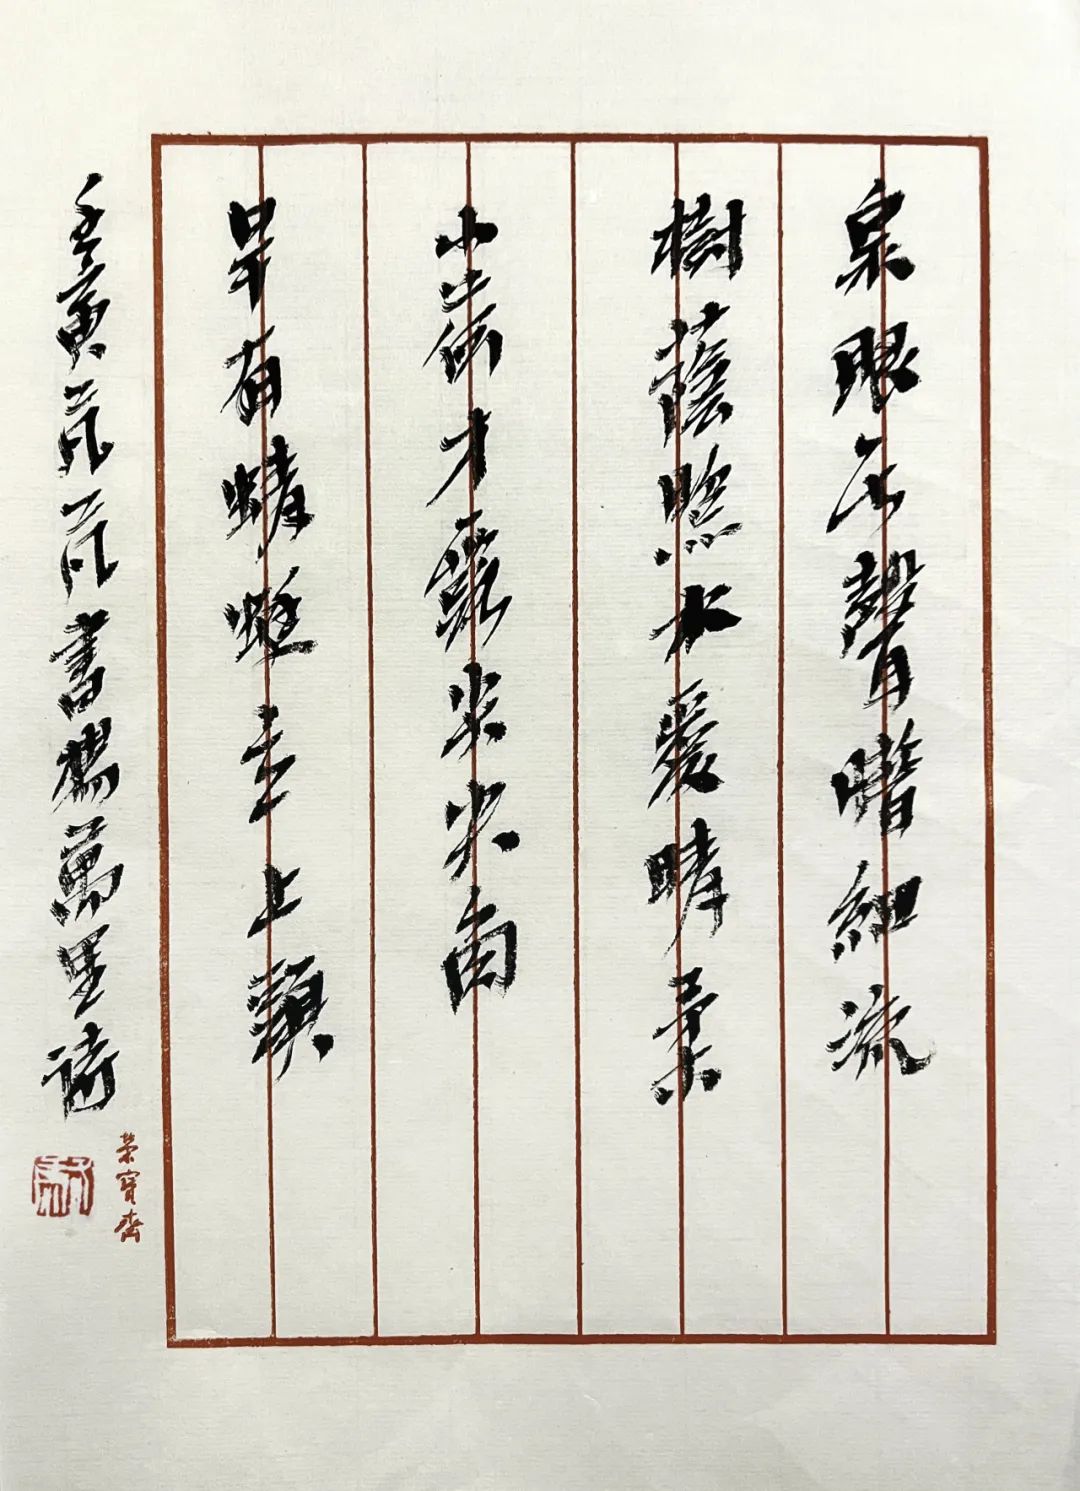 泉眼无聲惜細流
樹蔭照水愛晴柔
小荷才露尖尖角
早有蜻蜓立上頭
壬寅芃芃書楊萬里詩
榮寶齋